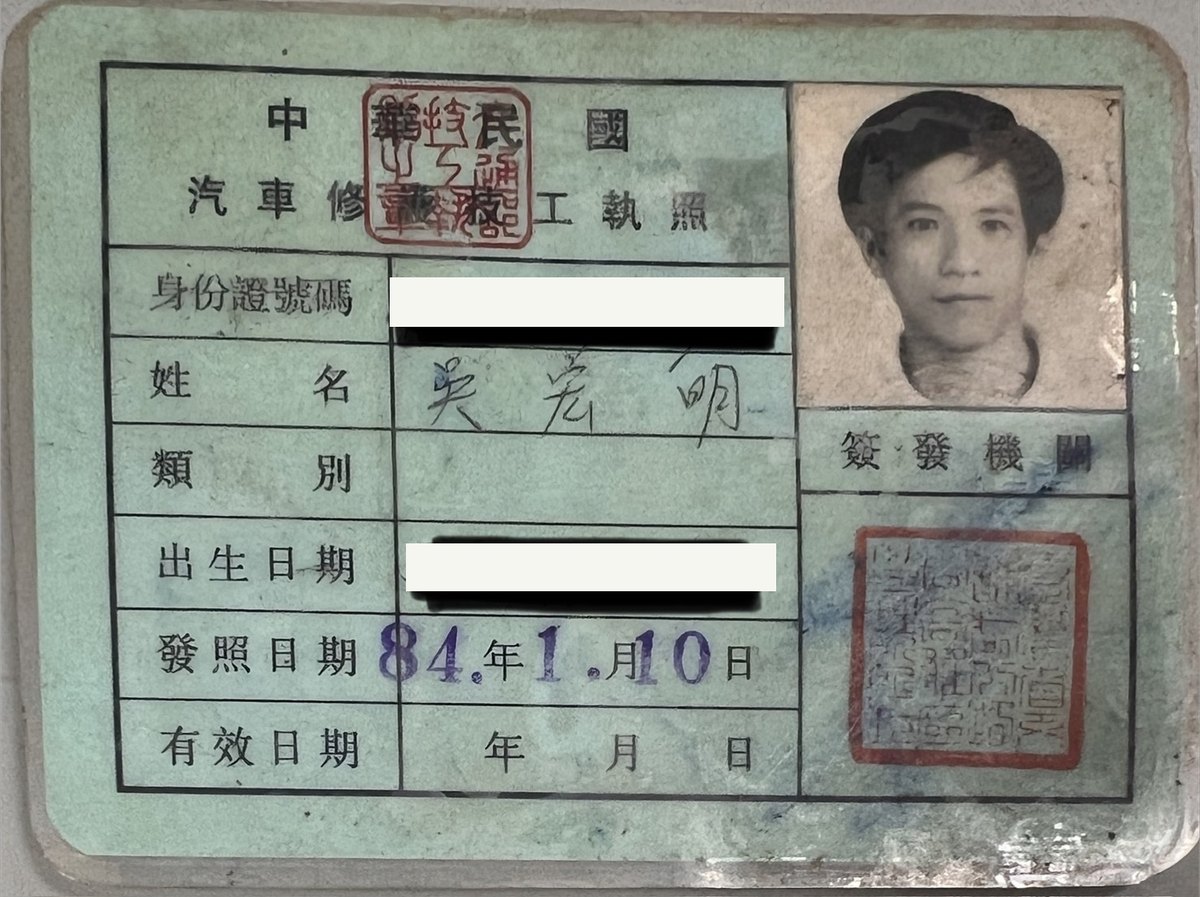 中華民國
汽車修護技工執照
身份證號碼
姓名 吳宏明
類別
出生日期
發照日期 84.年1.月10日
有效日期 年 月 日
簽發機關